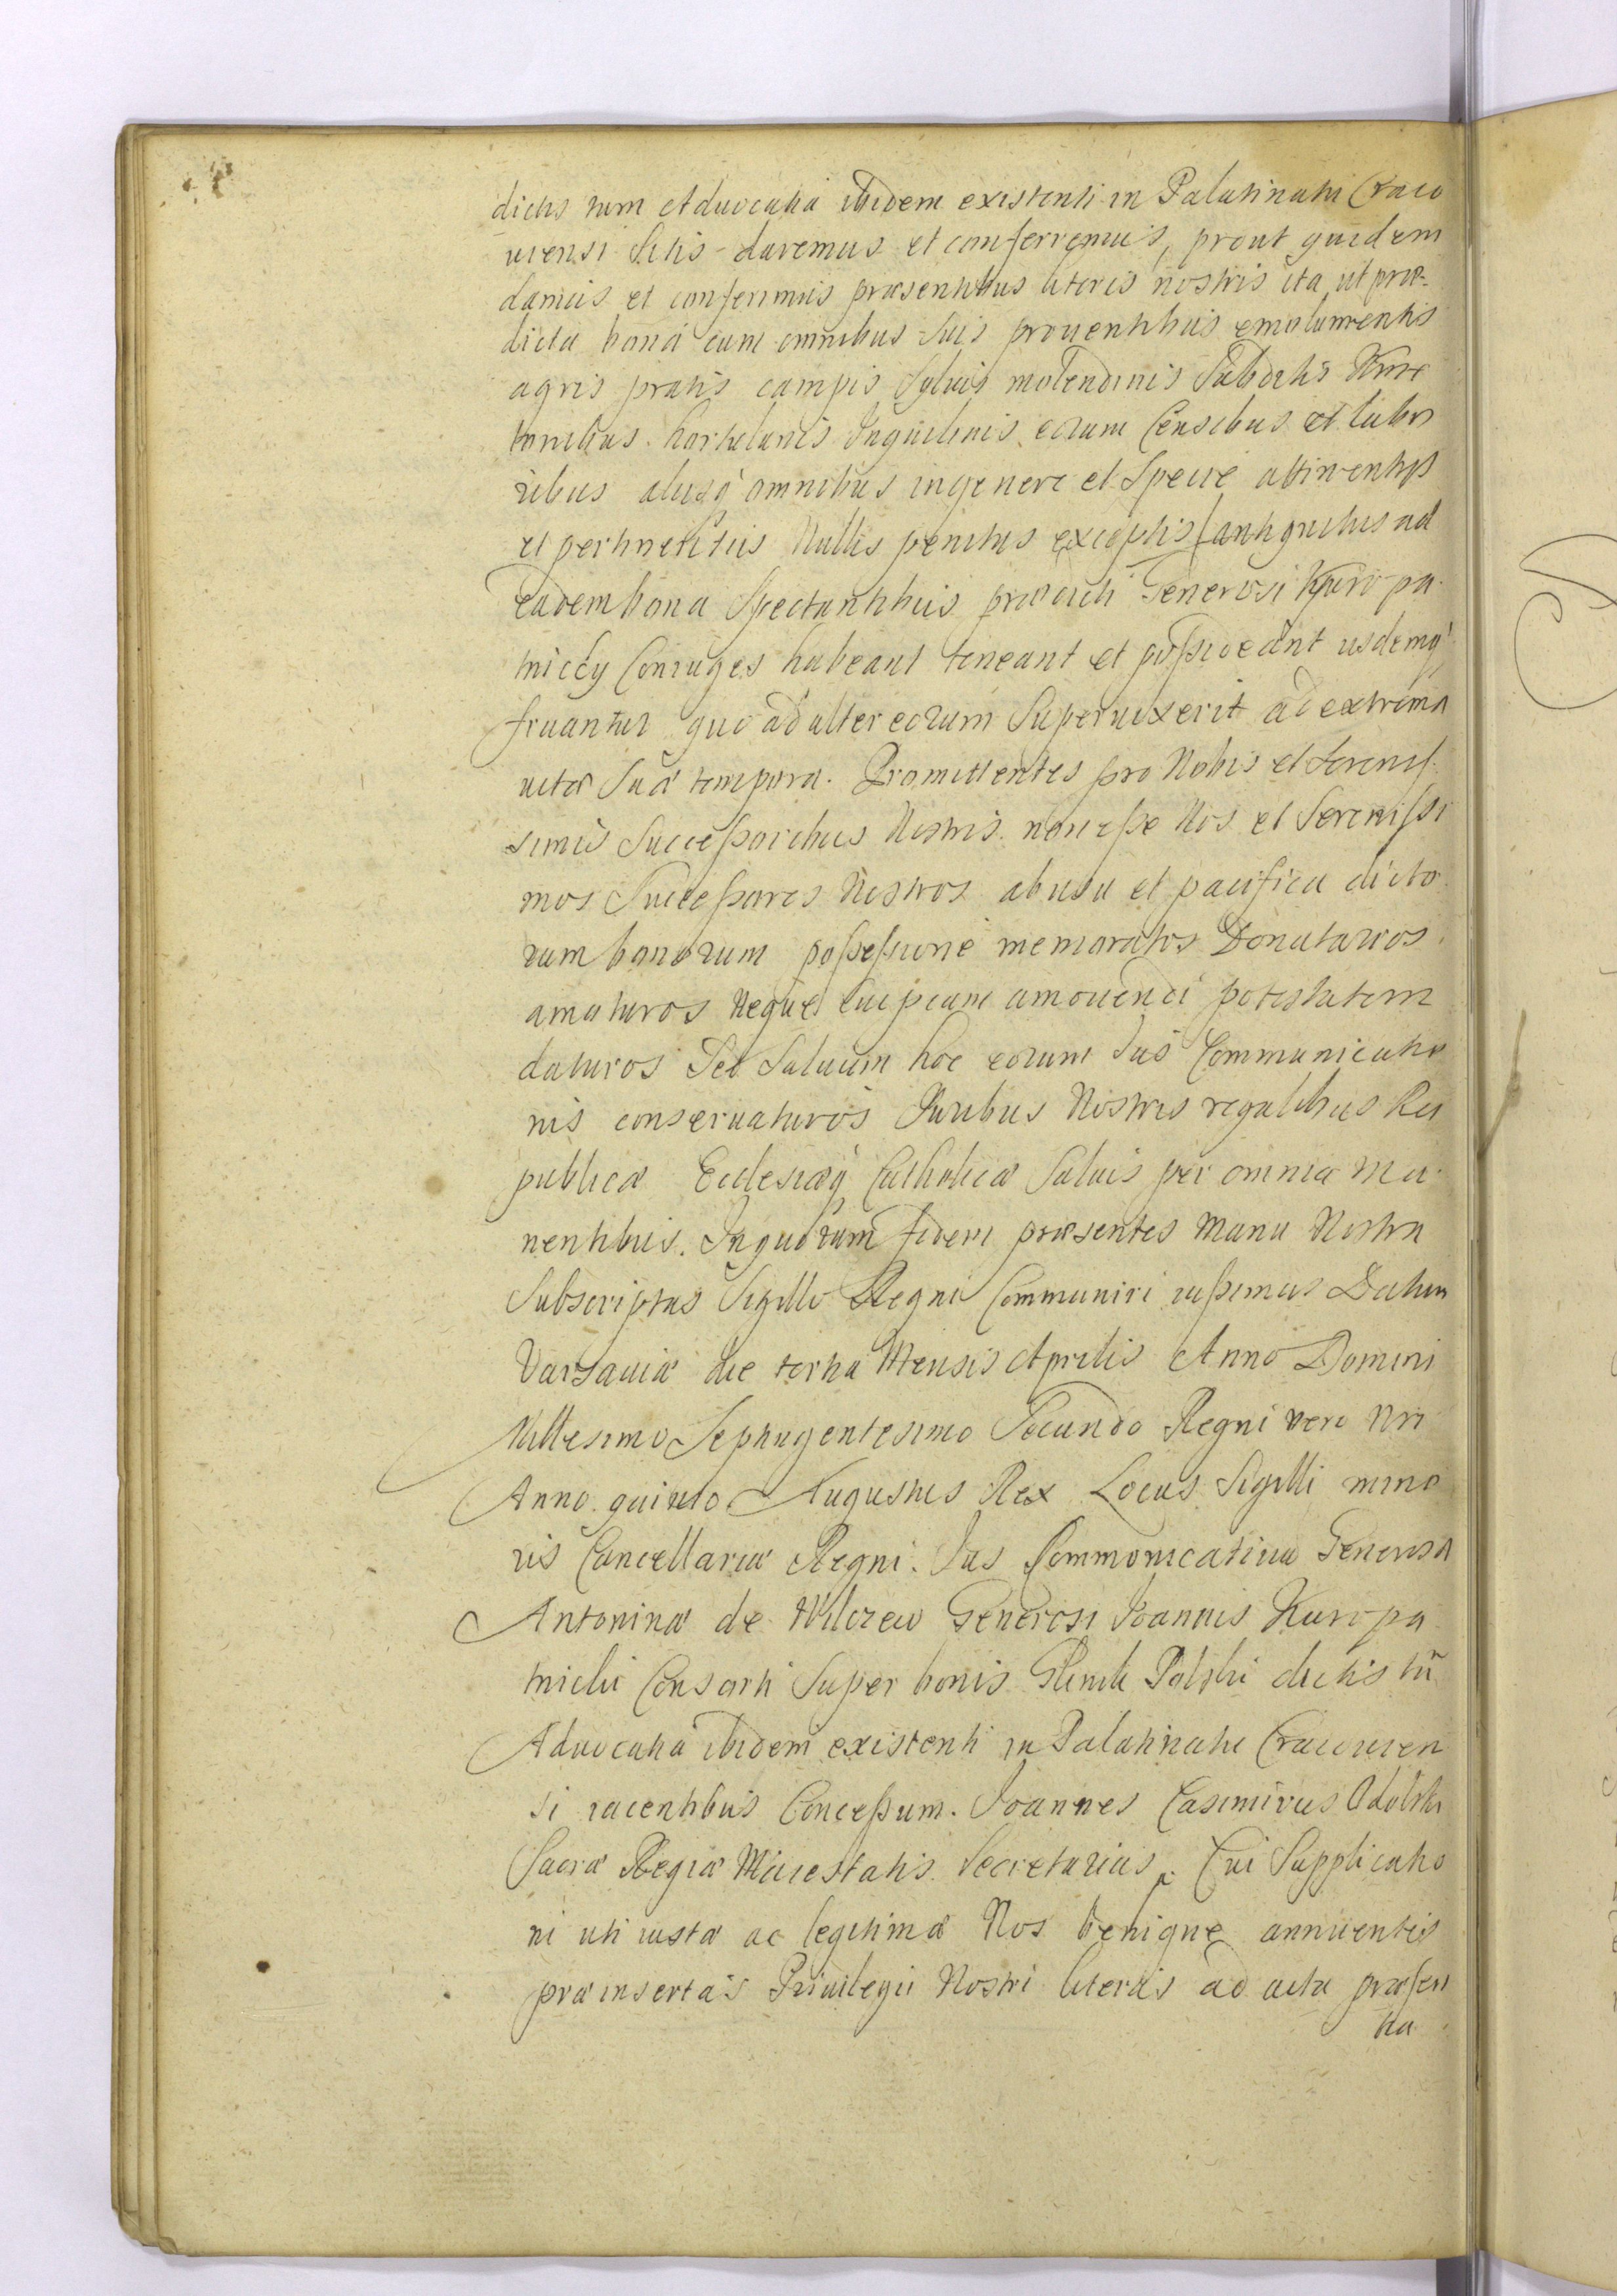 dictis tum Advocatia ibidem existenti in Palatinatu Craco
viensi Sitis daremus et conferremus, prout quidem
damus et conferimus præsentibus literis nostris ita, ut præ-
dicta bona cum omnibus suis prouentibus emolumentis
agris pratis campis Syluis molendinis Subditis Kme
tonibus hortulanis Inquilinis eorum Censibus et labo
ribus aliisq' omnibus ingenere et Specie attinentijs
et pertinentiis Nullis penitus exceptis antiquitus ad
eadem bona Spectantibus prædicti Generosi Kuropa
tniccy Coniuges habeant teneant et possideant iisdemq'
fruantur quo ad alter eorum Superuixerit ad extrema
uitæ Suæ tempora. Promittentes pro Nobis et Sereniss
simis Successoribus Nostris non esse Nos et Serenissi
mos Successores Nostros abusu et pacifica dicto
rum bonorum possessione memoratos Donatarios
amoturos Neque cuipiam amouendi potestatem
daturos Sed Saluum hoc eorum Ius Communicatio
nis conseruaturos Iuribus Nostris regalibus Rei
publicæ Ecclesiæq' Catholicæ Saluis per omnia ma
nentibus. Inquorum fidem præsentes Manu Nostra
Subscriptas Sigillo Regni Communiri iussimus Datum
Varsauiæ die tertia Mensis Aprilis Anno Domini
Millesimo Septingentesimo Secundo Regni vero Nri
Anno quinto Augustus Rex Locus Sigilli mino
ris Cancellariæ Regni. Ius Communicatiuu Generosæ
Antoninæ de Generosi Joannis Kuropa
tnicki Consorti Super bonis Polski dictis tũ
Aduocatia ibidem existenti in Palatinatu Cracouien
si iacentibus Concessum. Joannes Casimirus
Sacræ Regiæ Maiestatis Secretarius. Cui Supplicatio
ni uti iustæ ac legitimæ Nos benigne annuentes
præinsertas Priuilegii Nostri literas ad acta præsen
tia